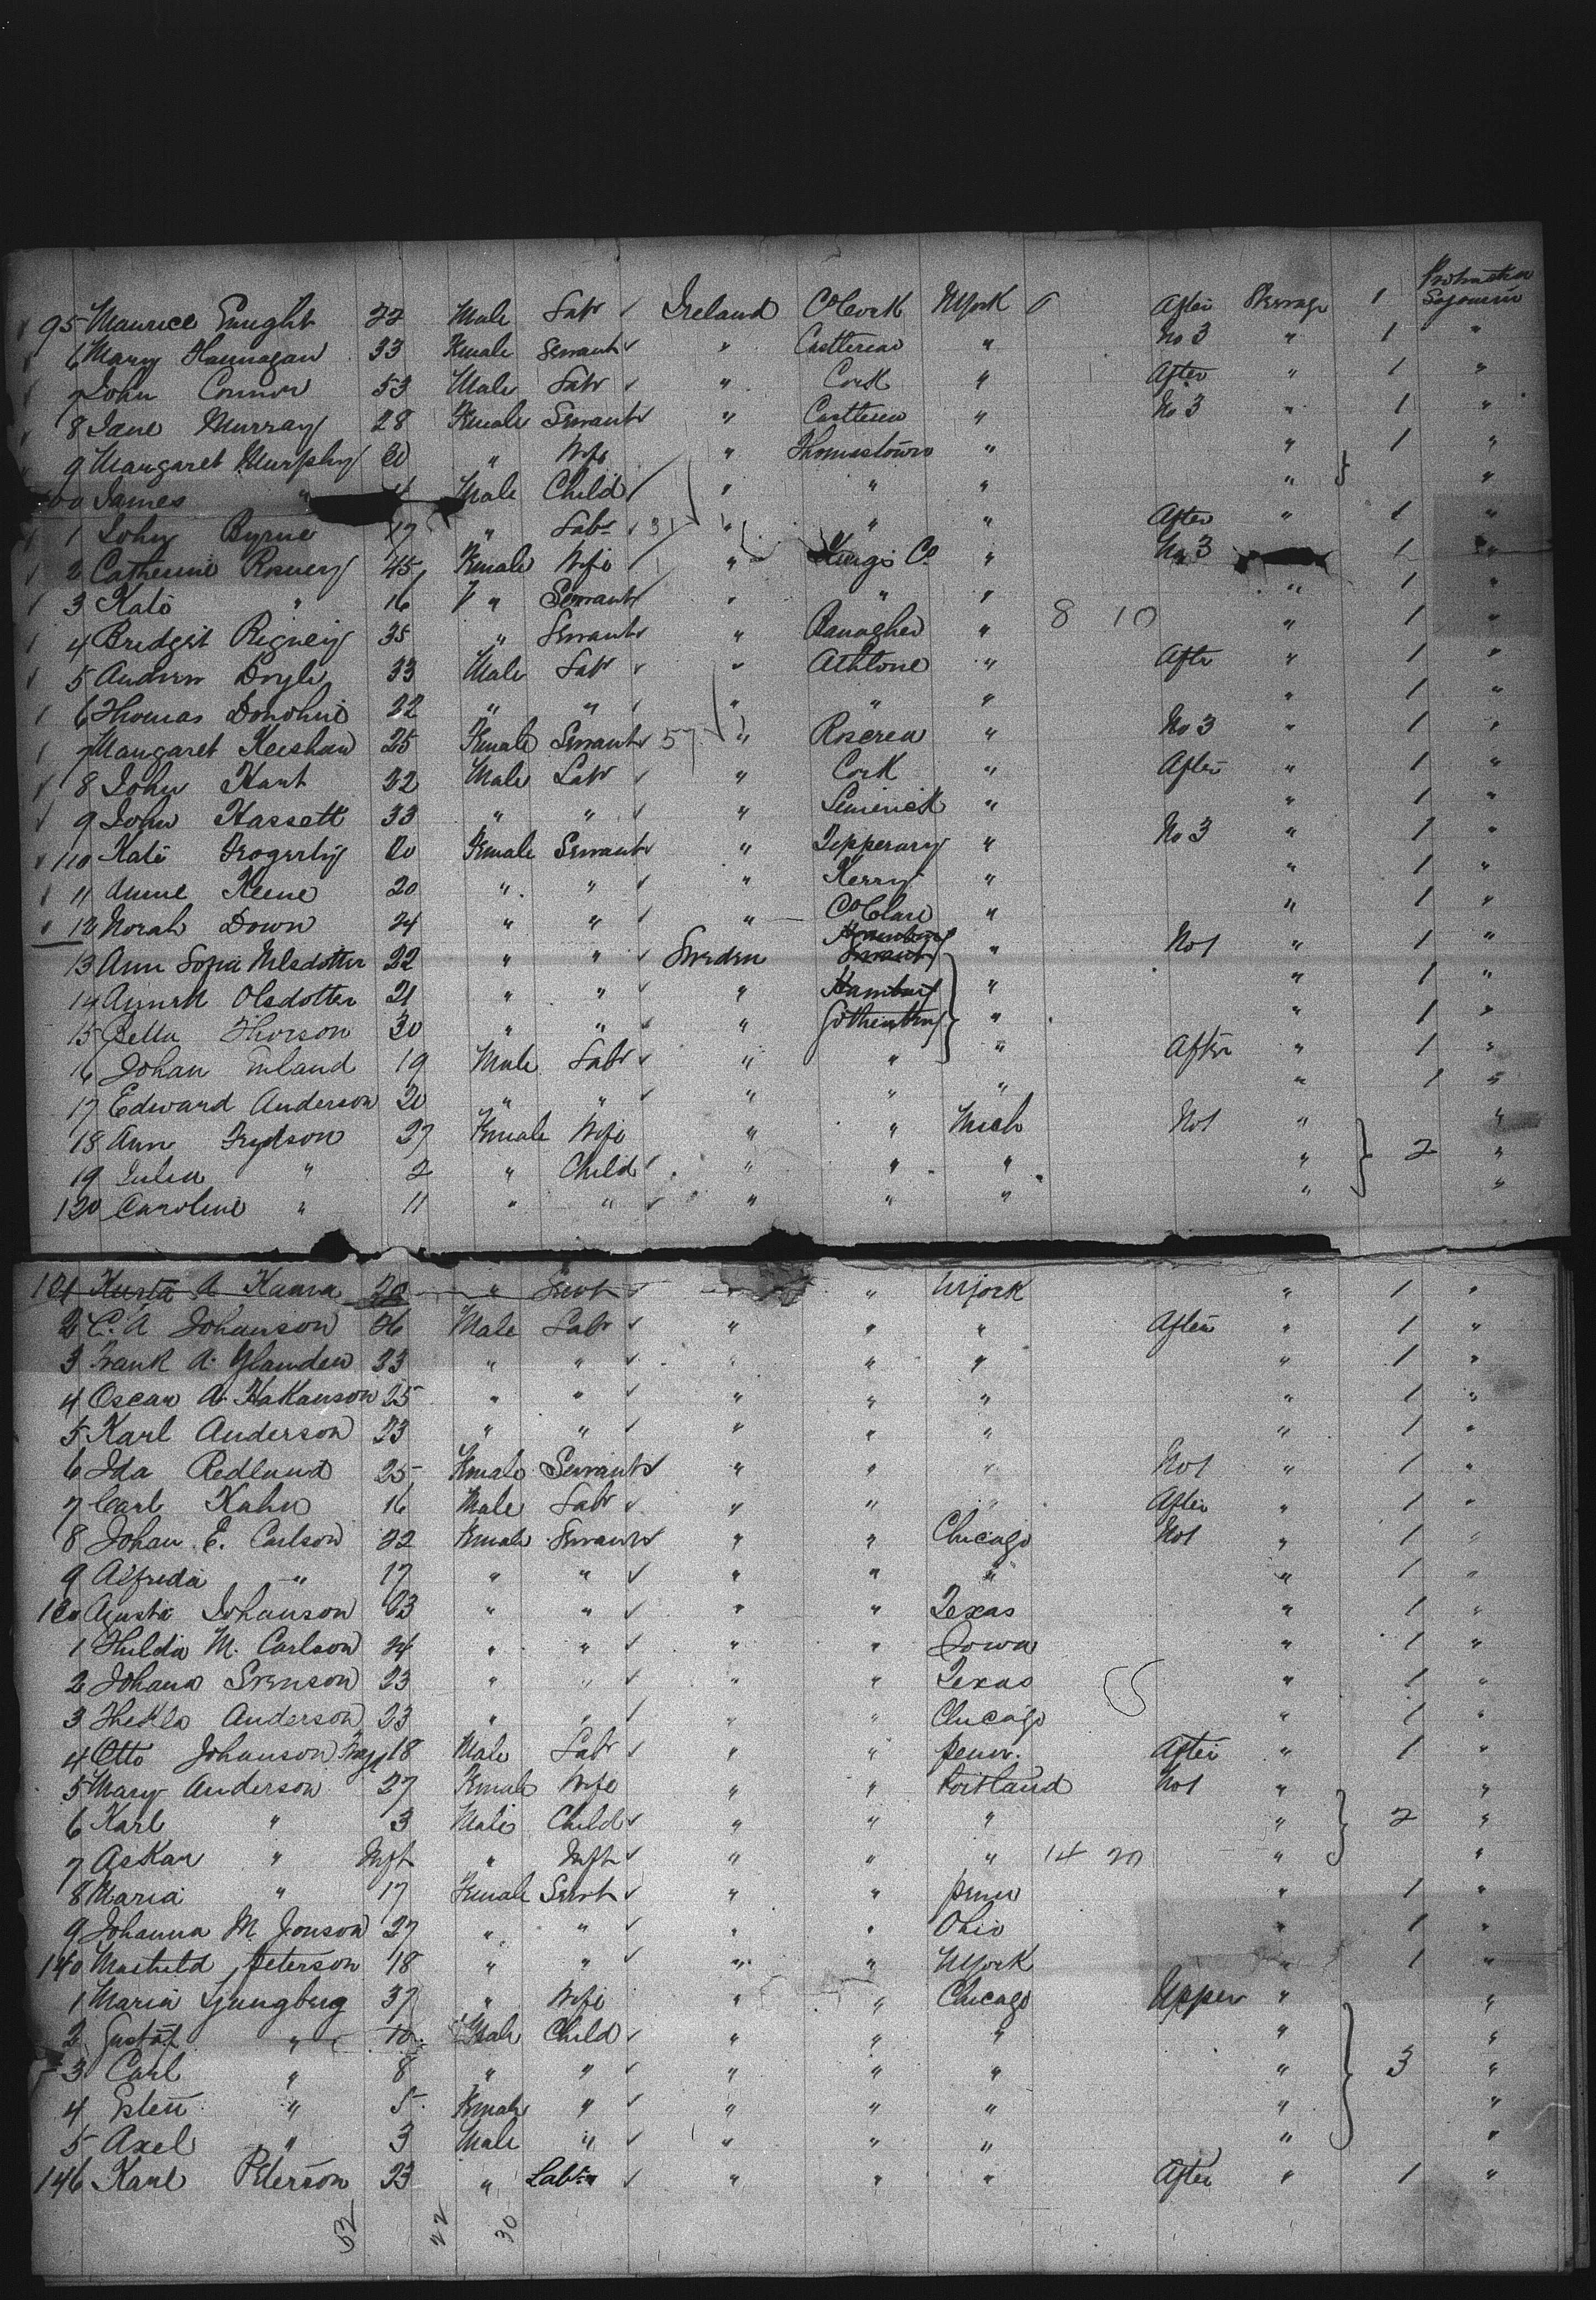 Protracted
95 Maurice Enright 22 Male Labr Ireland Co Cork NYork After Steerage 1 Sojourn
6 Mary Hannagan 33 Female Servant " Castlerea " No 3 " 1 "
7 John Connor 53 Male Labr " Cork " After " 1 "
8 Jane Murray 28 Female Servant " Castlerea " No 3 " 1 "
9 Margaret Murphy 20 " Wife " Thomastown " " 1 "
100 James " Male Child " " " " "
1 John Byrne 17 " Labr 31 " " " After " 1 "
2 Catherine 45 Female Wife " Kings Co " No 3 1 "
3 Kate " 16 " Servant " " " " 1 "
4 Bridget Rigney 35 " Servant " Banagher " 8 10 " 1 "
5 Andrew Doyle 33 Male Labr " Athlone " After " 1 "
6 Thomas Donohue 22 " " " " " " 1 "
7 Margaret Keeshan 25 Female Servant 57 " Roscrea " No 3 " 1 "
8 John Hart 32 Male Labr " Cork " After " 1 "
9 John Hassett 33 " " " Limerick " " 1 "
110 Kate Fogerty 20 Female Servant " Tipperary " No 3 " 1 "
11 Annie Keene 20 " " " Kerry " " 1 "
12 Norah Down 24 " " " Co Clare " " 1 "
13 Ann Sofia Nelsdotter 22 " " Sweden " No 1 " 1 "
14 Olsdotter 21 " " " Hamburg " " 1 "
15 Bella Thorson 30 " " " Gothenburg " " 1 "
16 Johan Enland 19 Male Labr " " " After " 1 "
17 Edward Anderson 20 " " " " " " 1 "
18 Ann 27 Female Wife " " Mich No 1 " "
19 Julia " 2 " Child " " " " 2 "
120 Caroline " 11 " " " " " " "
121 A 20 " Servt " " NYork " 1 "
2 C. A Johanson 26 Male Labr " " " After " 1 "
3 Frank A. 33 " " " " " " 1 "
4 Oscar A Hakanson 25 " " " " " " 1 "
5 Karl Anderson 23 " " " " " " 1 "
6 Ida Redlund 25 Female Servant " " " No 1 " 1 "
7 Carl Kahn 16 Male Labr " " " After " 1 "
8 Johan E. Carlson 22 Female Servant " " Chicago No 1 " 1 "
9 Alfreda " 17 " " " " " " 1 "
130 Agusta Johanson 23 " " " " Texas " 1 "
1 Hulda M. Carlson 24 " " " " Iowa " 1 "
2 Johana Svenson 23 " " " " Texas " 1 "
3 Thekla Anderson 23 " " " " Chicago " 1 "
4 Otto Johanson 18 Male Labr " " Penn. After " 1 "
5 Mary Anderson 27 Female Wife " " Portland No 1 " "
6 Karl " 3 Male Child " " " " 2 "
7 Askar " Inft " Inft " " " 14 20 " "
8 Maria " 17 Female Servt " " Penn " 1 "
9 Johanna M Jonson 27 " " " " Ohio " 1 "
140 Mathild Peterson 18 " " " " NYork " 1 "
1 Maria Ljungberg 37 " Wife " " Chicago Upper " "
2 Gustaf " 10 Male Child " " " " "
3 Carl " 8 " " " " " " 3 "
4 Esten " 5 Female " " " " " "
5 Axel " 3 Male " " " " " "
146 Karl Peterson 23 " Labr " " " After " 1 "
22 30